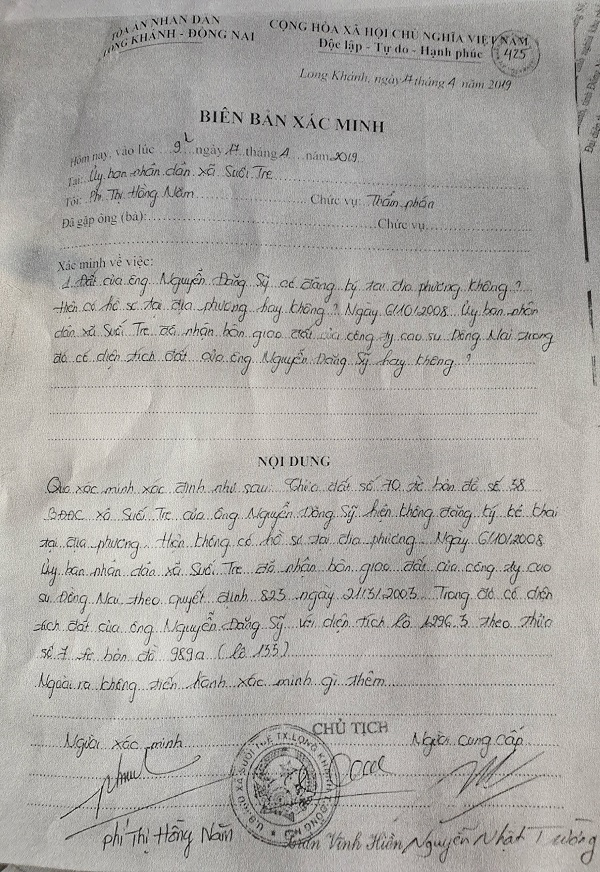 TÒA ÁN NHÂN DÂN
LONG KHÁNH - ĐỒNG NAI
CỘNG HÒA XÃ HỘI CHỦ NGHĨA VIỆT NAM
Độc lập - Tự do - Hạnh phúc
425
Long Khánh, ngày 17 tháng 4 năm 2019
BIÊN BẢN XÁC MINH
Hôm nay, vào lúc 9h ngày 17 tháng 4 năm 2019
Tại: Ủy ban nhân dân xã Suối Tre
Tôi: Phí Thị Hồng Năm Chức vụ: Thẩm phán
Đã gặp ông (bà): Chức vụ
Xác minh về việc:
1. Đất của ông Nguyễn Đăng Sỹ có đăng ký tại địa phương không?
hiện có hồ sơ tại địa phương hay không? Ngày 6/10/2008 Ủy ban nhân
dân xã Suối Tre đã nhận bàn giao đất của công ty cao su Đồng Nai trong
đó có diện tích đất của ông Nguyễn Đăng Sỹ hay không?
NỘI DUNG
Qua xác minh xác định như sau: Thửa đất số 70 tờ bản đồ số 38
BĐĐC xã Suối Tre của ông Nguyễn Đăng Sỹ hiện không đăng ký kê khai
tại địa phương. Hiện không có hồ sơ tại địa phương. Ngày 6/10/2008
Ủy ban nhân dân xã Suối Tre đã nhận bàn giao đất của công ty cao
su Đồng Nai theo quyết định 823 ngày 21/3/2003. Trong đó có diện
tích đất của ông Nguyễn Đăng Sỹ với diện tích là 1296.3 theo thửa
số 7 tờ bản đồ 989a (lô 135)
Ngoài ra không tiến hành xác minh gì thêm
CHỦ TỊCH
Người xác minh Người cung cấp
Phí Thị Hồng Năm Trần Vĩnh Hiền Nguyễn Nhật Trường